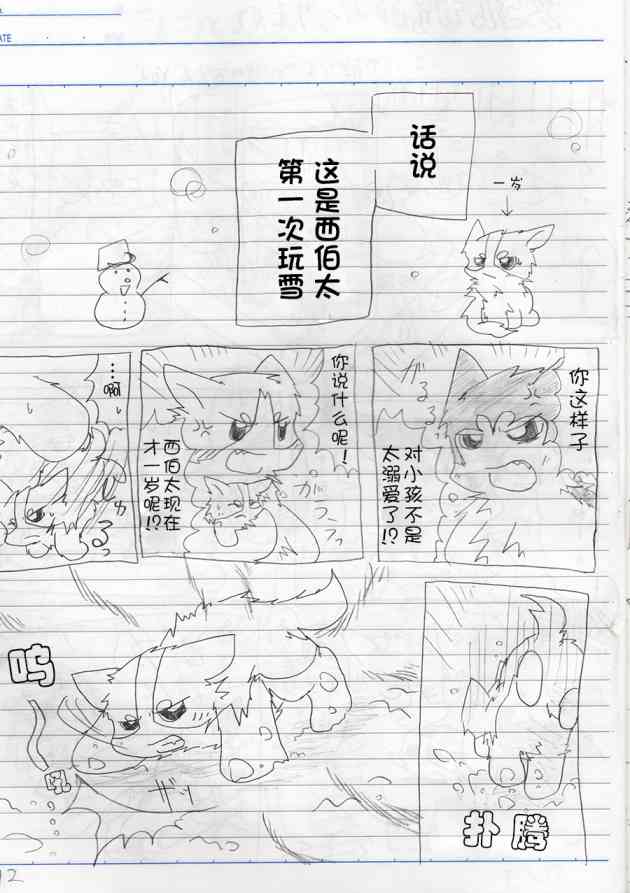 ATE
话说
这是西伯太
第一次玩雪
一岁
你这样子
对小孩不是
太溺爱了!?
がるる
你说什么呢!
西伯太现在
才一岁呢!?
がう
…啊
扑腾
呜
吼
ザッ
12